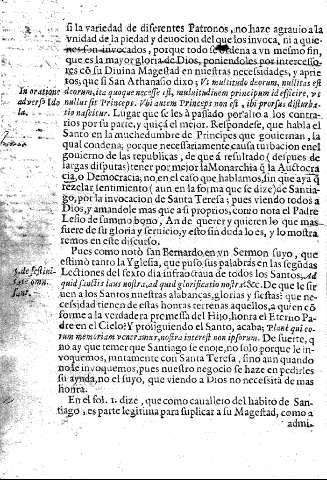 si la variedad de diferentes Patronos, no haze agrauio a la
vnidad de la piedad y deuocion del que los inuoca, ni a quie-
nes son inuocados, porque todo se ordena a vn mesmo fin,
que es la mayor gloria de Dios, poniendoles por intercesso-
res cõ su Diuina Magestad en nuestras necessidades, y aprie-
tos, que si San Athanasio dixo: Vbi multitudo deorum, nullitas est
In oratione
deorum, ita quoque necesse est, multitudinem principum id efficere, vt
aduersus Ido
nullus sit Princeps. Vbi autem Princeps non est, ibi prorsus disturba-
la.
tio nascitur. Lugar que se les à passado por alto a los contra-
rios por su parte, y quiçá el mejor. Respondese, que habla el
Santo en la muchedumbre de Principes que gouiernan, la
qual condena; porque necessariamente causa turbacion en el
gouierno de las republicas, de que à resultado (despues de
largas disputas) tener por mejor la Monarchia q̃ la Auctocra
cia, o Democracia; no en el caso que hablamos, sin que aya q̃
rezelar sentimiento (aun en la forma que se dize) de Santia-
go, por la inuocacion de Santa Teresa; pues viendo todos a
Dios, y amandole mas que a si proprios, como nota el Padre
Lesio de summo bono, An de querer y quieren lo que mas
fuere de su gloria y seruicio, y esto sin duda lo es, y lo mostra
remos en este discurso.
Pues como notò san Bernardo en vn Sermon suyo, que
estimò tanto la Yglesia, que puso sus palabras en las segũdas
5. de festiui-
Lectiones del sexto dia infraoctaua de todos los Santos. Ad
tate omn.
quid sanctis laus nostra, ad quid glorificatio nostra? &c. De que le sir
sanct.
uen a los Santos nuestras alabanças, glorias y fiestas? que ne-
cessidad tienen de estas honras terrenas aquellos, a quien cõ
forme a la verdadera promessa del Hijo, honra el Eterno Pa-
dre en el Cielo? Y prosiguiendo el Santo, acaba; Planè qui eo-
rum memoriam veneramur, nostra interest non ipsorum. De suerte, q̃
no ay que temer que Santiago se enoje, no solo porque le in-
voquemos, juntamente con Santa Teresa, sino aun quando
no le inuoquemos, pues nuestro negocio se haze en pedirles
su ayuda, no el suyo, que viendo a Dios no necessita de mas
honra.
En el fol. 1. dize, que como cauallero del habito de San-
tiago, es parte legitima para suplicar a su Magestad, como a
admi-